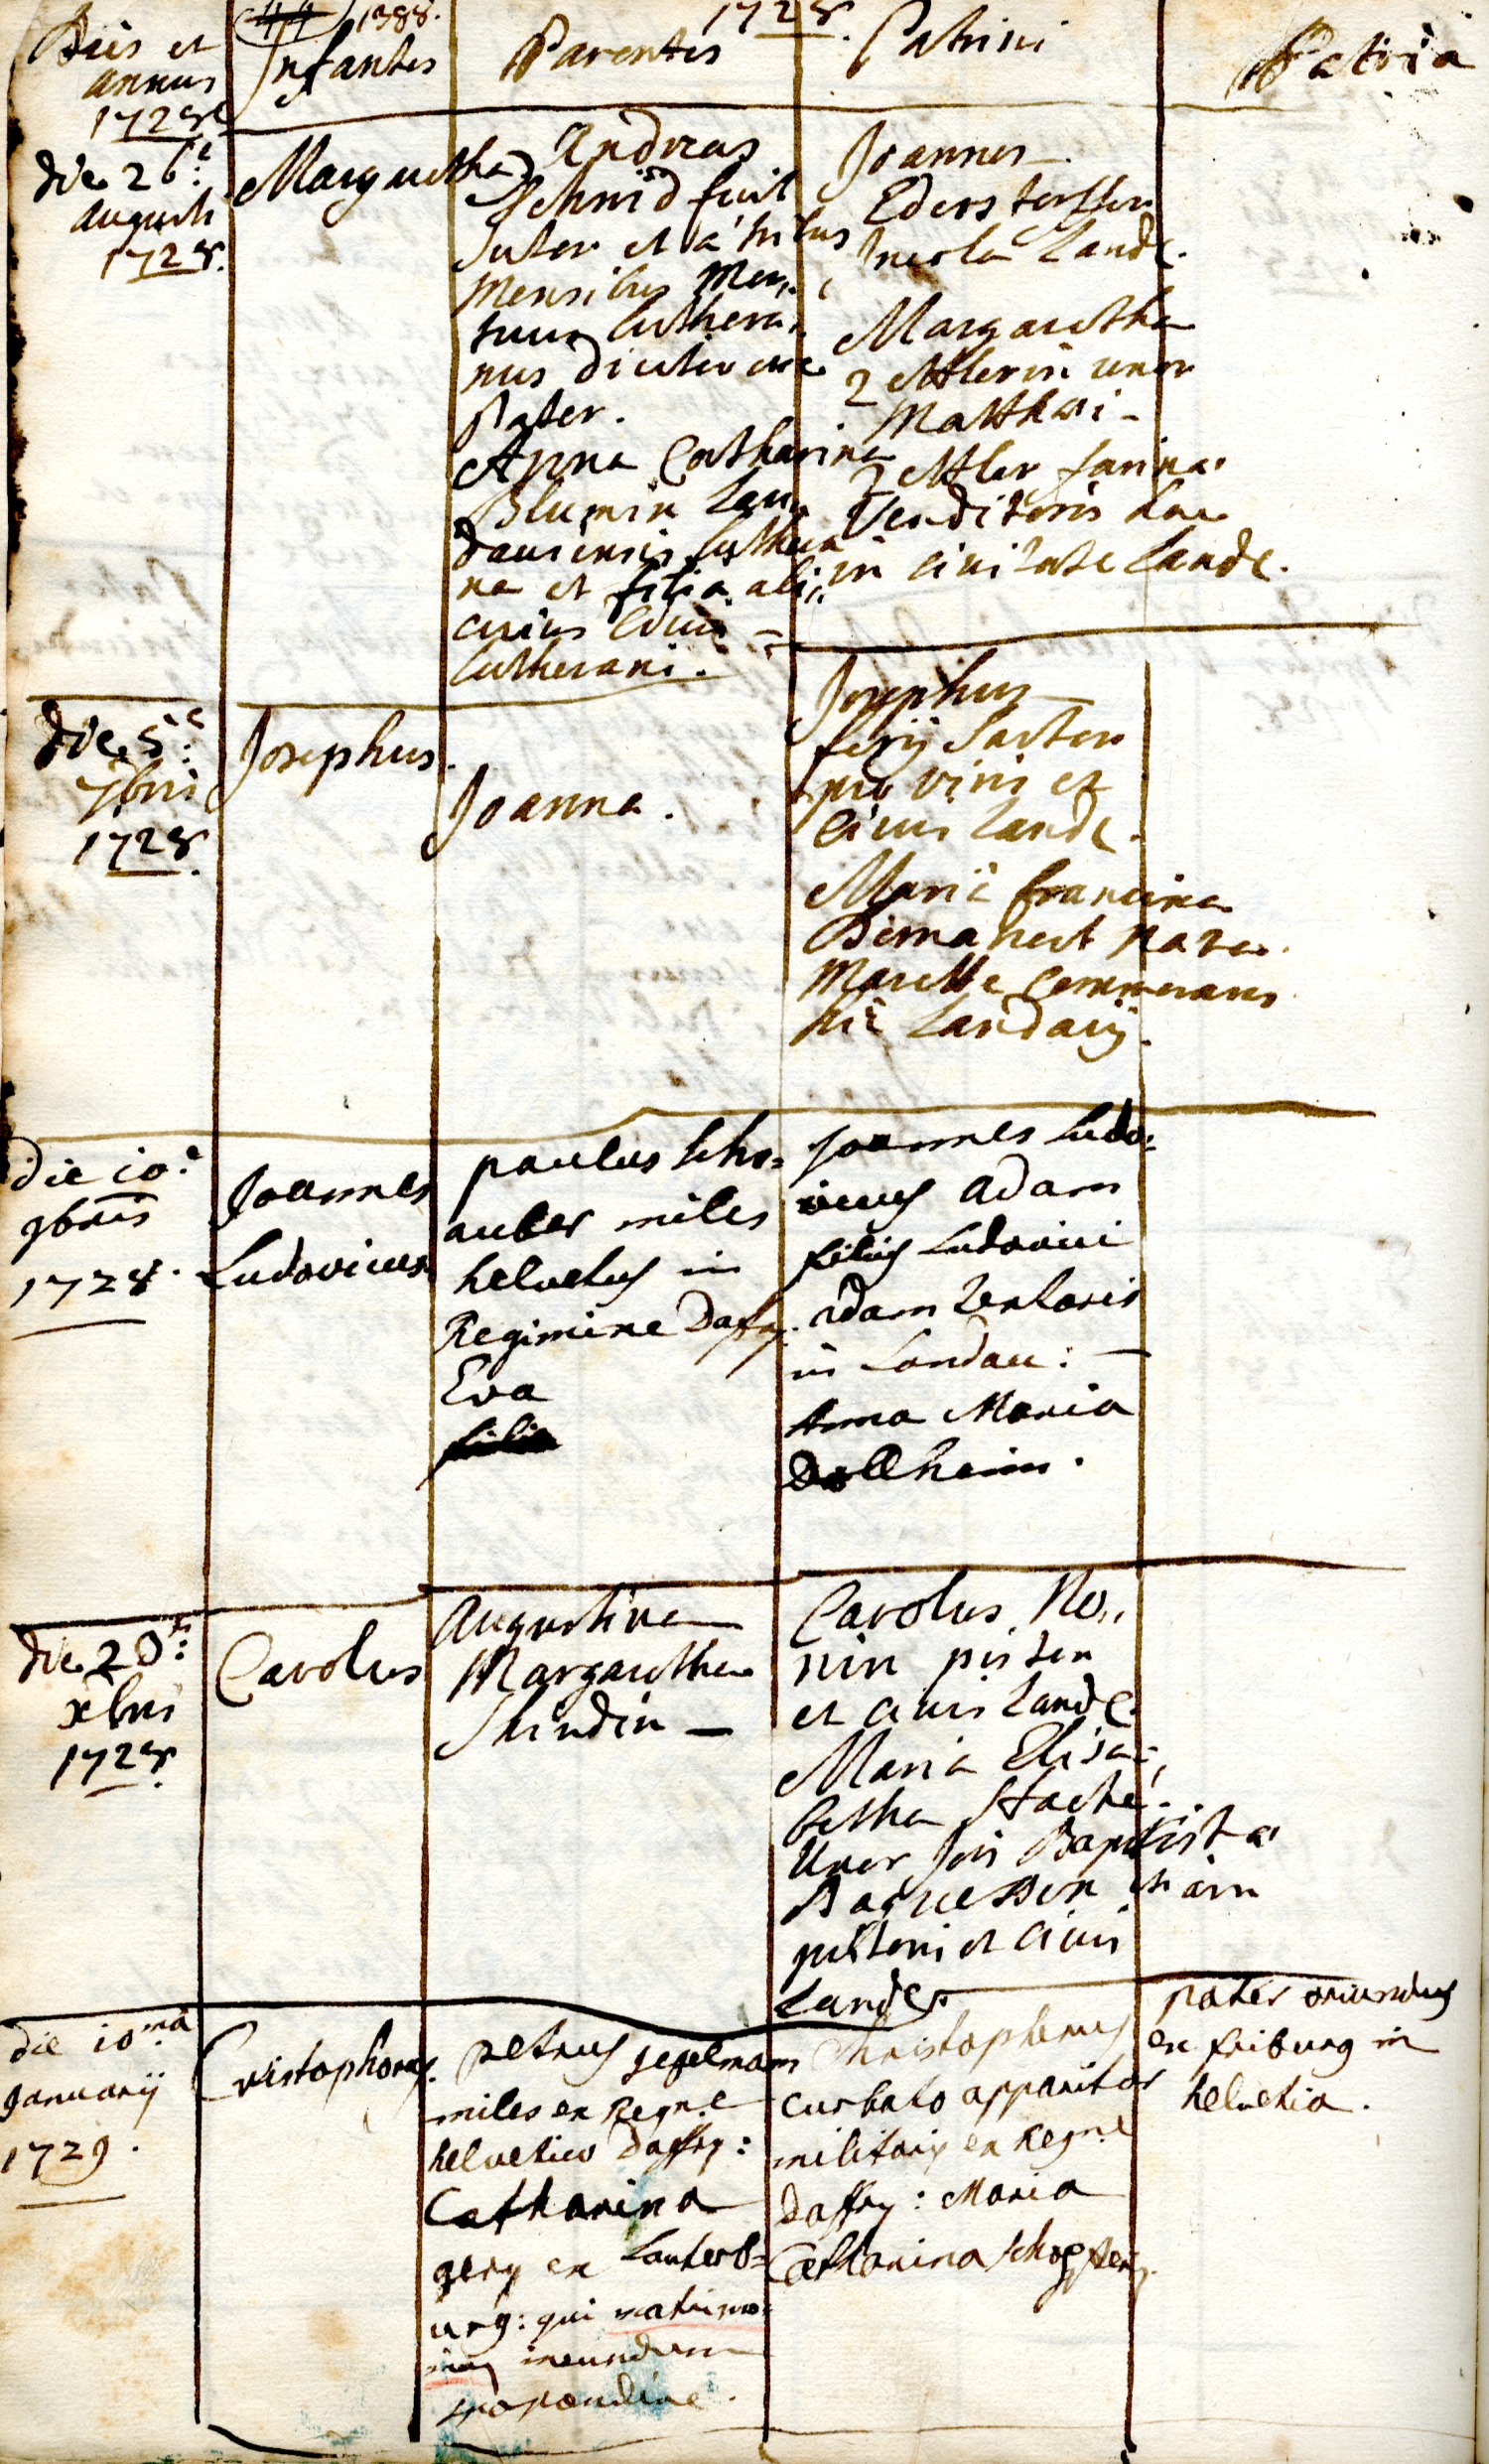 1388.
1728.
Dies et
annus
1728
Infantes
Parentes
Patrini
Patria
die 26.
augusti
1728.
Margaretha
Andreas
Schmid fuit
Sutor et a tribus
Mensibus Mor,,
tuus luthera,,
nus dicitur esse
Pater.
Anna Catharina
Blumin Lan,,
dauiensis luthera
na et filia ali,,
cuius civis
lutherani.
Joannes
incola Land.
Margaretha
Zettlerin uxor
Matthæi
Zettler farinæ
Venditoris hac
in civitate Land.
die 5.
7bris
1728.
Josephus.
Joanna.
Josephus
ferÿ Sartor
pro vini et
civis Land.
Maria francina
nata
Marette commorans
hic Landavÿ.
die 10.
9bris
1728.
Joannes
Ludovicus
paulus scho=
auber miles
helvetus in
Regimine Daffry.
Eva
Joannes Ludo=
vicus Adam
filius Ludovici
Adam textoris
in Landau:
Anna Maria
Dollheim.
die 20.
xbris
1728.
Carolus
Augustina
Margaretha
Carolus No,,
nin pistor
et civis Land.
Maria Elisa=
betha Staché
Uxor Jois Baptistæ
etiam
pistoris et civis
Lande
die 10ma
Januarÿ
1729.
Cristophorus.
petrus
miles ex Regne
helvetico Daffry:
Catharina
gery ex Lauterb=
urg: qui matrimo=
nium ineundum
spopondere.
Christophorus
curbato apparitor
militaris ex Regne
Daffry: Maria
Catharina
pater oriundus
ex friburg in
helvetia.